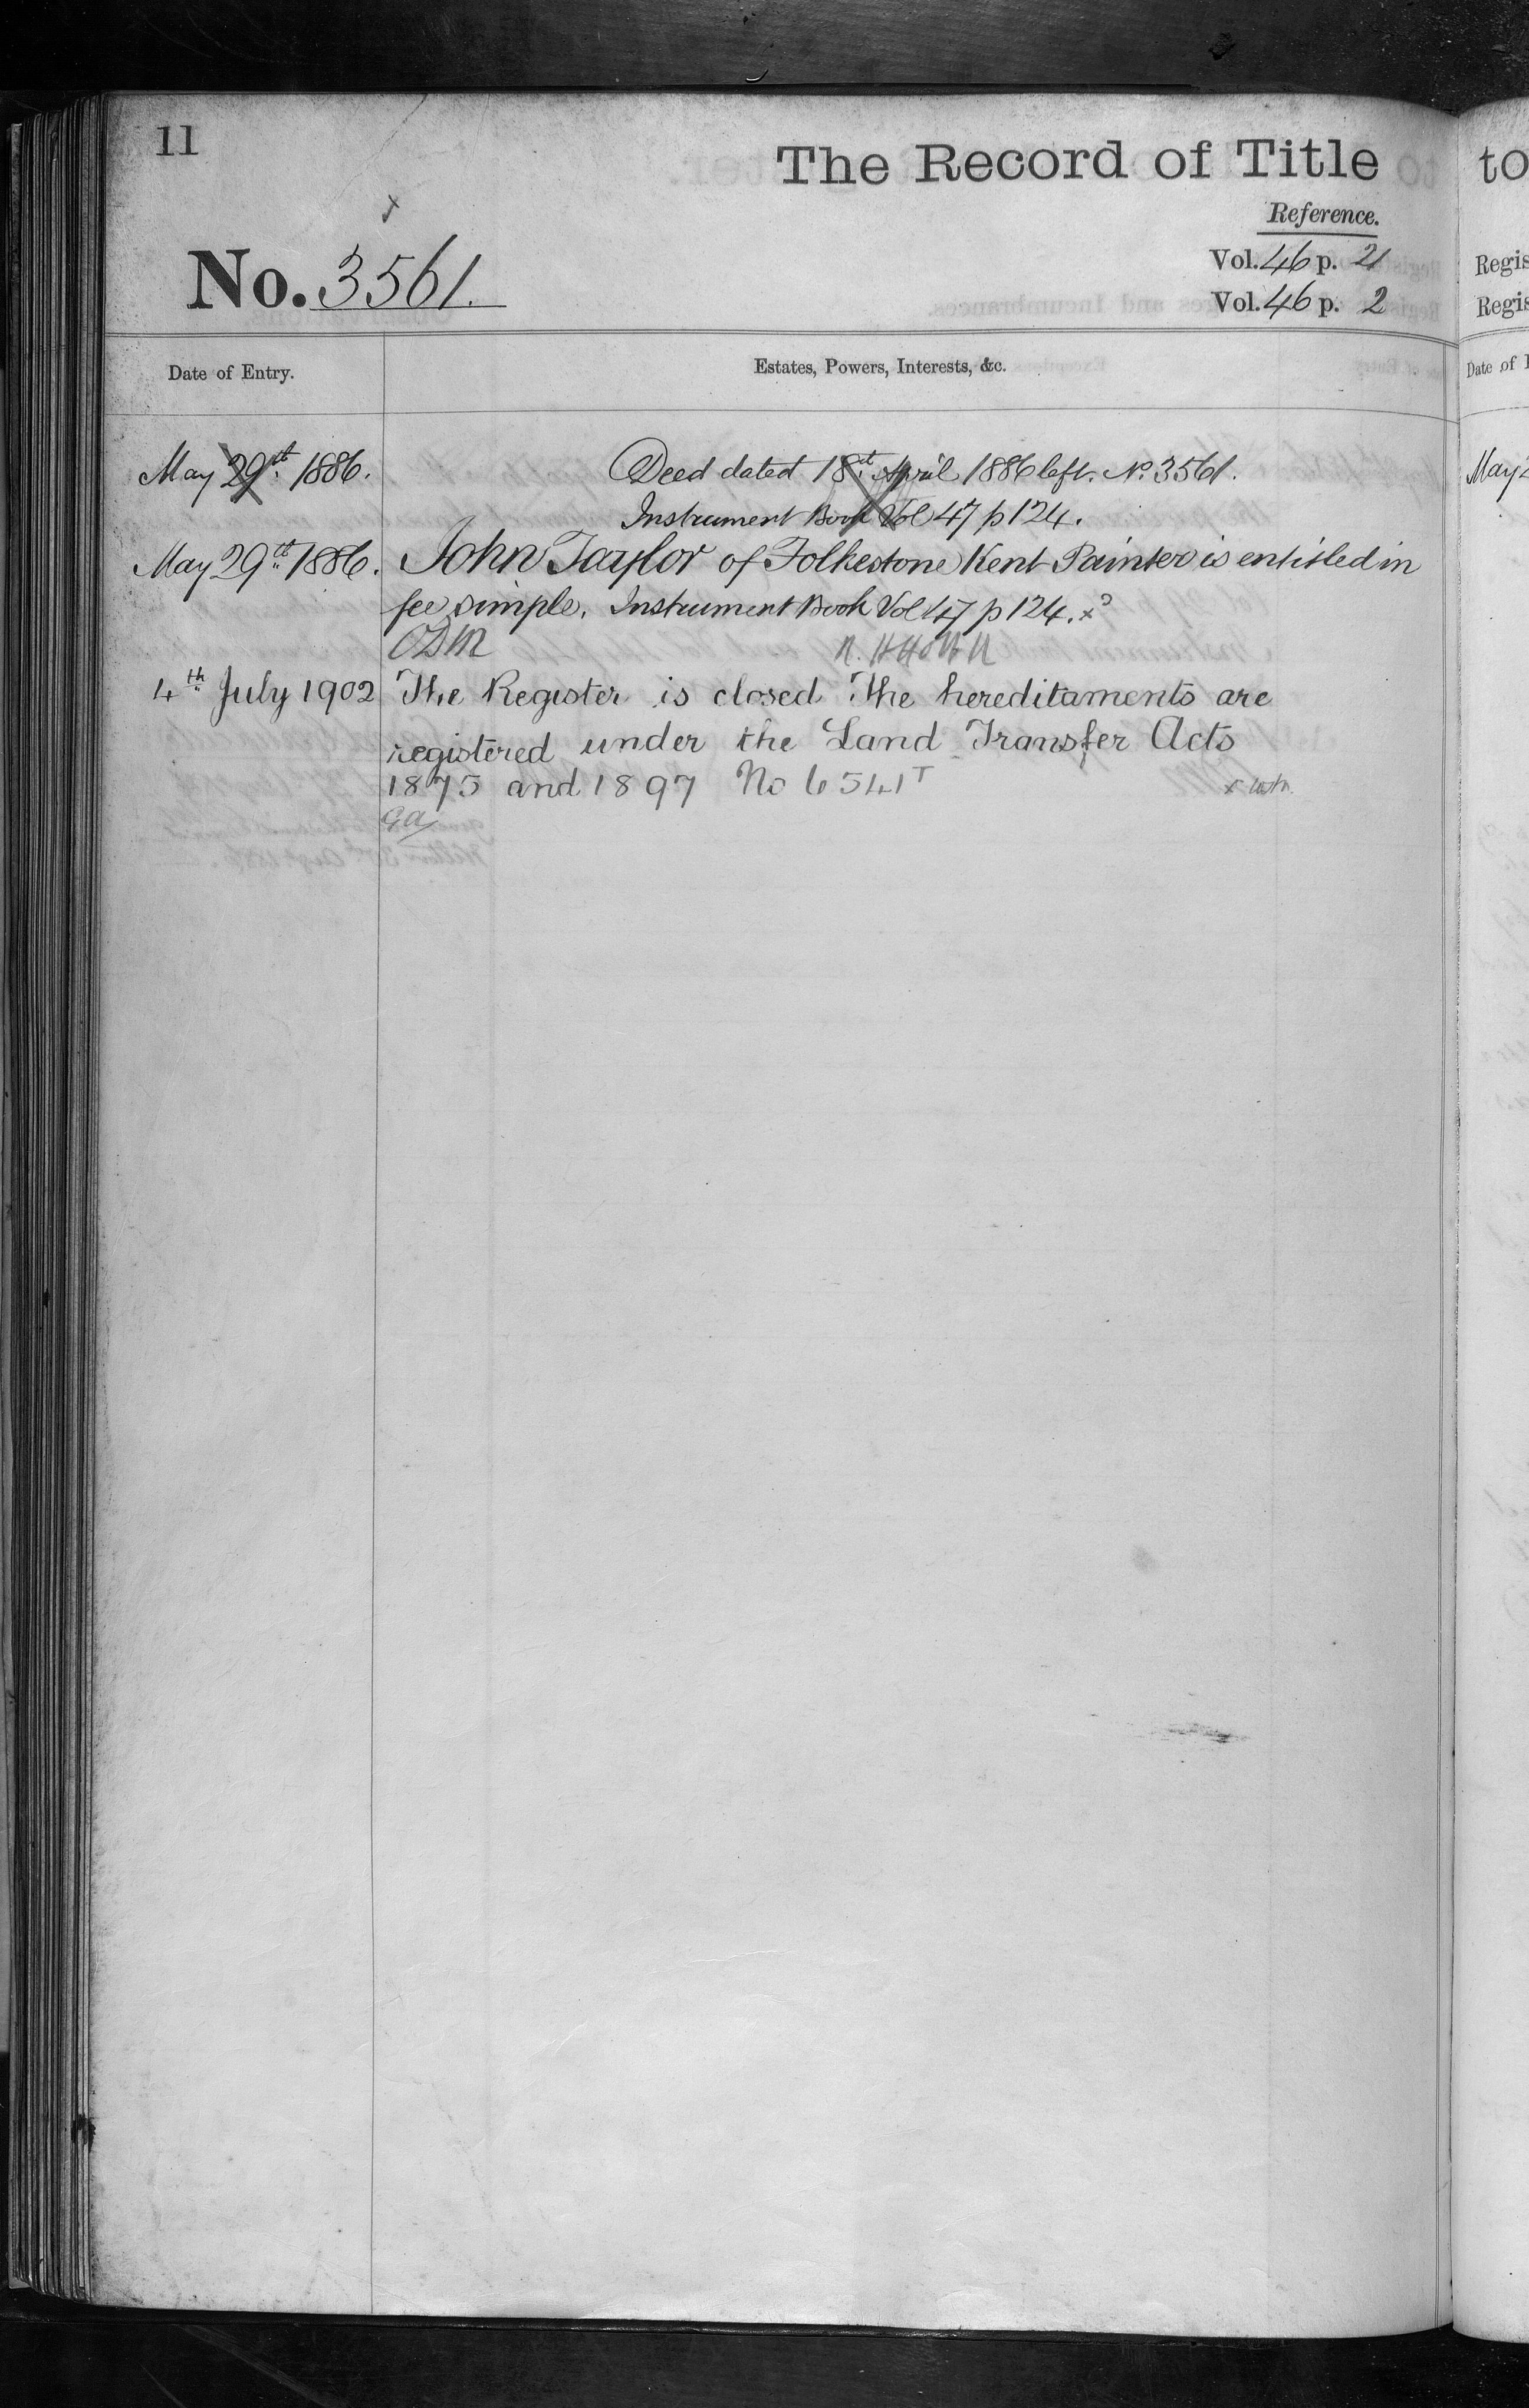 11
The Record of Title
to
Reference.
No. 3561.
Vol. 46 p. 21
Regis
Vol. 46 p. 2
Regis
Date of Entry.
Estates, Powers, Interests, &c.
Date of
May 29th 1886.
Deed dated 18th April 1886 left. No. 3561.
May
Instrument Book Vol 47 p 124.
May 29th 1886.
John Taylor of Folkestone Kent Painter is entitled in
fee simple. Instrument Book Vol 47 p 124. x
4th July 1902
The Register is closed The hereditaments are
registered under the Land Transfer Acts
1875 and 1897 No 6541T